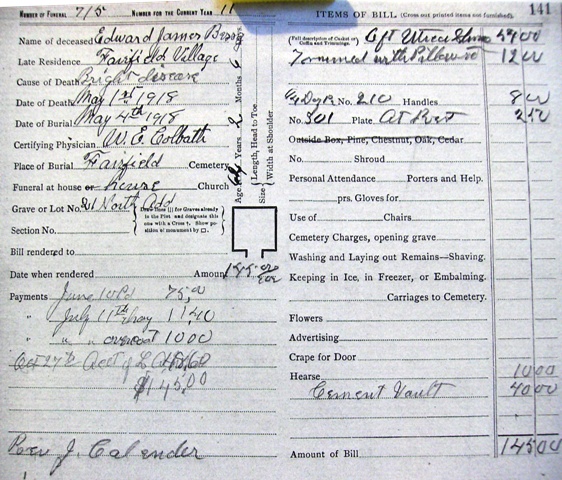 NUMBER OF FUNERAL 715 NUMBER FOR THE CURRENT YEAR 11
Name of deceased Edward James
Late Residence Fairfield Village
Cause of Death Bright disease
Date of Death May 1st 1918
Date of Burial May 4th 1918
Certifying Physician W. E. Colbath
Place of Burial Fairfield Cemetery
Funeral at house or house Church
Grave or Lot No. 21 North Add
Draw lines for Graves already in the Plot and designate this one with a Cross †. Show position of monument by □.
Section No.
Bill rendered to
Date when rendered Amount
Payments June 10 Pd 75,00
" July 11th hay 11 40
" " " overcoat 10 00
Oct 27th Acct of L
$145,00
Rev J. Calender
Age Years 2 Months 6 Days
Size Length, Head to Toe
Width at Shoulder
ITEMS OF BILL (Cross out printed items not furnished). 141
(Full description of Casket or Coffin and Trimmings. 6ft
Trimmed with 12 00
No. 210 Handles 8 00
No. 301 Plate At Rest 2 50
Outside Box, Pine, Chestnut, Oak, Cedar
No. Shroud
Personal Attendance Porters and Help.
prs. Gloves for
Use of Chairs.
Cemetery Charges, opening grave
Washing and Laying out Remains—Shaving.
Keeping in Ice, in Freezer, or Embalming.
Carriages to Cemetery.
Flowers
Advertising
Crape for Door
Hearse 10 00
Cement Vault 40 00
Amount of Bill 145 00